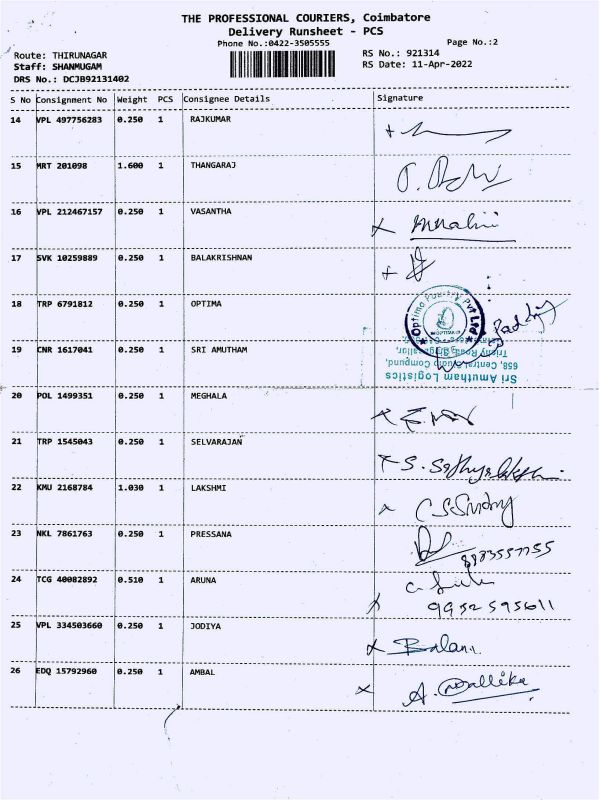 THE PROFESSIONAL COURIERS, Coimbatore
Delivery Runsheet - PCS
Phone No.:0422-3505555
Page No.:2
Route: THIRUNAGAR
RS No.: 921314
Staff: SHANMUGAM
RS Date: 11-Apr-2022
DRS No.: DCJB92131402
S No Consignment No Weight PCS Consignee Details Signature
14 VPL 497756283 0.250 1 RAJKUMAR
15 MRT 201098 1.600 1 THANGARAJ
16 VPL 212467157 0.250 1 VASANTHA
17 SVK 10259889 0.250 1 BALAKRISHNAN
18 TRP 6791812 0.250 1 OPTIMA
19 CNR 1617041 0.250 1 SRI AMUTHAM
Sri Amutham Logistics
20 POL 1499351 0.250 1 MEGHALA
21 TRP 1545043 0.250 1 SELVARAJAN
22 KMU 2168784 1.030 1 LAKSHMI
23 NKL 7861763 0.250 1 PRESSANA
24 TCG 40082892 0.510 1 ARUNA
9952595611
25 VPL 334503660 0.250 1 JODIYA
26 EDQ 15792960 0.250 1 AMBAL
A. Mallika